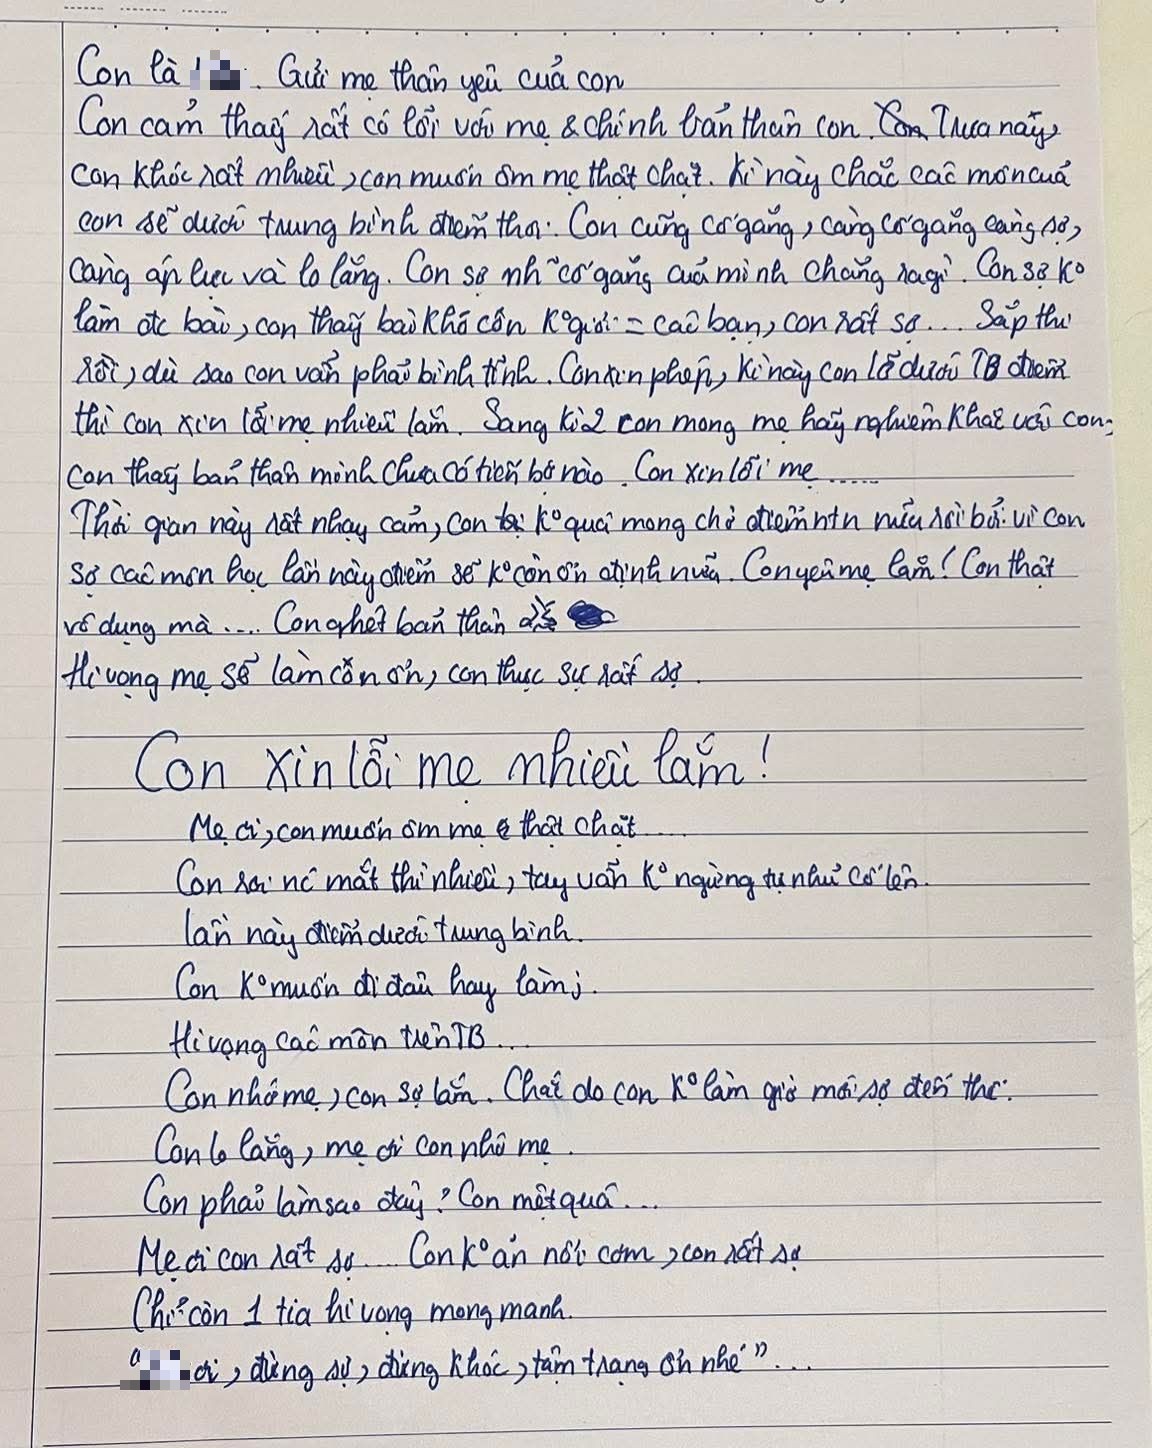 Con là . Gửi mẹ thân yêu của con
Con cảm thấy rất có lỗi với mẹ & chính bản thân con. Trưa nay,
con khóc rất nhiều, con muốn ôm mẹ thật chặt. Kì này chắc các môn của
con sẽ dưới trung bình điểm thi. Con cũng cố gắng, càng cố gắng càng sợ,
càng áp lực và lo lắng. Con sợ nh~ cố gắng của mình chẳng ra gì. Con sợ K°
làm đc bài, con thấy bài khó còn K° giỏi = các bạn, con rất sợ... Sắp thi
rồi, dù sao con vẫn phải bình tĩnh. Con xin phép, kì này con lỡ dưới TB điểm
thì con xin lỗi mẹ nhiều lắm. Sang kì 2 con mong mẹ hãy nghiêm khắc với con,
con thấy bản thân mình chưa có tiến bộ nào. Con xin lỗi mẹ......
Thời gian này rất nhạy cảm, con K° quá mong chờ điểm ntn nữa rồi bởi vì con
sợ các môn học lần này điểm sẽ K° còn ổn định nữa. Con yêu mẹ lắm! Con thật
vô dụng mà.... Con ghét bản thân
Hi vọng mẹ sẽ làm còn ổn, con thực sự rất sợ.
Con xin lỗi mẹ nhiều lắm!
Mẹ ơi, con muốn ôm mẹ thật chặt.....
Con rơi nc mắt thì nhiều, tay vẫn K° ngừng tự nhủ cố lên.
lần này điểm dưới trung bình.
Con K° muốn đi đâu hay làm j.
Hi vọng các môn trên TB...
Con nhớ mẹ, con sợ lắm. Chắc do con K° làm giờ mới sợ đến thế.
Con lo lắng, mẹ ơi con nhớ mẹ.
Con phải làm sao đây? Con mệt quá...
Mẹ ơi con rất sợ.... Con K° ăn nổi cơm, con rất sợ
Chỉ còn 1 tia hi vọng mong manh.
" ơi, đừng sợ, đừng khóc, tâm trạng ổn nhé"...